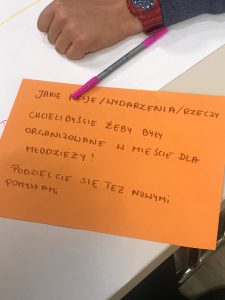 JAKIE AKCJE/WYDARZENIA/RZECZY
CHCIELIBYŚCIE ŻEBY BYŁY
ORGANIZOWANE W MIEŚCIE DLA
MŁODZIEŻY?
PODZIELCIE SIĘ TEŻ NOWYMI
POMYSŁAMI